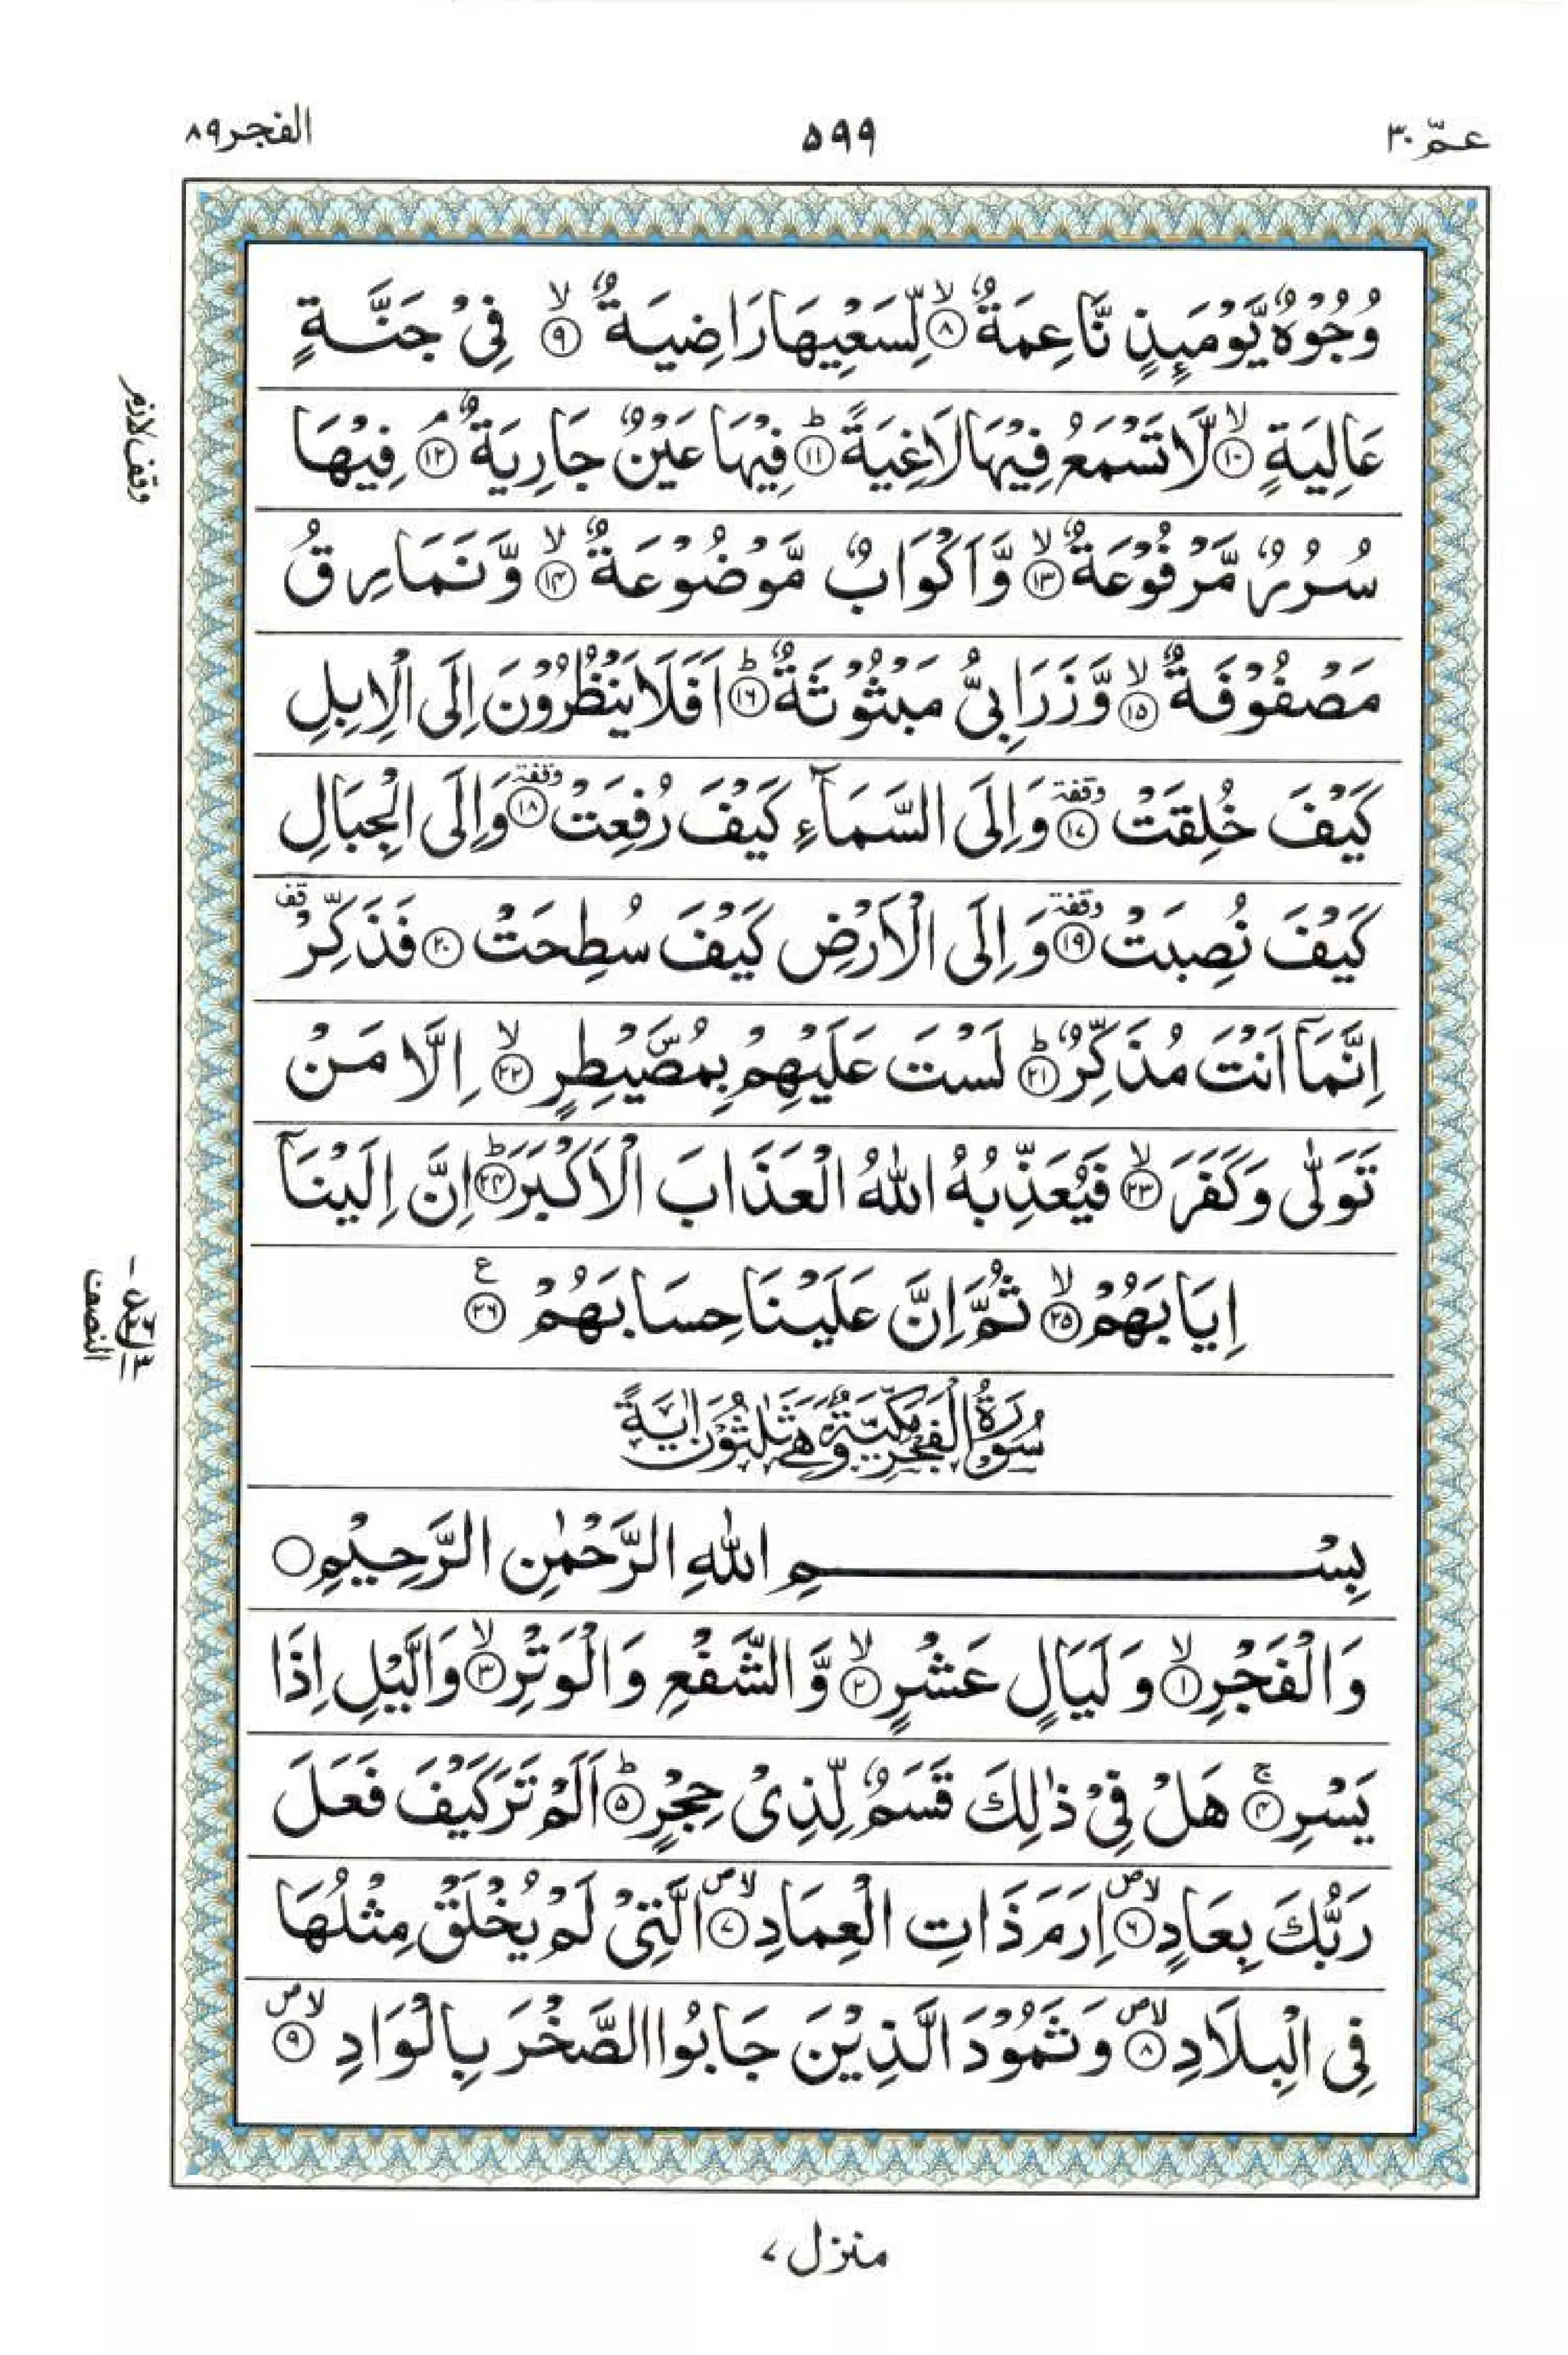 الفجر ٨٩
٥٩٩
عمّ ٣٠
وُجُوْهٌ يَّوْمَىِٕذٍ نَّاعِمَةٌ ۙ﴿٨﴾ لِّسَعْيِهَا رَاضِيَةٌ ۙ﴿٩﴾ فِىْ جَنَّةٍ
عَالِيَةٍ ۙ﴿١٠﴾ لَّا تَسْمَعُ فِيْهَا لَاغِيَةً ؕ﴿١١﴾ فِيْهَا عَيْنٌ جَارِيَةٌ ۘ﴿١٢﴾ فِيْهَا
سُرُرٌ مَّرْفُوْعَةٌ ۙ﴿١٣﴾ وَّاَكْوَابٌ مَّوْضُوْعَةٌ ۙ﴿١٤﴾ وَّنَمَارِقُ
مَصْفُوْفَةٌ ۙ﴿١٥﴾ وَّزَرَابِىُّ مَبْثُوْثَةٌ ؕ﴿١٦﴾ اَفَلَا يَنْظُرُوْنَ اِلَى الْاِبِلِ
كَيْفَ خُلِقَتْ وقفة ﴿١٧﴾ وَاِلَى السَّمَآءِ كَيْفَ رُفِعَتْ وقفة ﴿١٨﴾ وَاِلَى الْجِبَالِ
كَيْفَ نُصِبَتْ وقفة ﴿١٩﴾ وَاِلَى الْاَرْضِ كَيْفَ سُطِحَتْ ﴿٢٠﴾ فَذَكِّرْ قف
اِنَّمَاۤ اَنْتَ مُذَكِّرٌ ؕ﴿٢١﴾ لَسْتَ عَلَيْهِمْ بِمُصَۜيْطِرٍ ۙ﴿٢٢﴾ اِلَّا مَنْ
تَوَلّٰى وَكَفَرَ ۙ﴿٢٣﴾ فَيُعَذِّبُهُ اللّٰهُ الْعَذَابَ الْاَكْبَرَ ؕ﴿٢٤﴾ اِنَّ اِلَيْنَاۤ
اِيَابَهُمْ ۙ﴿٢٥﴾ ثُمَّ اِنَّ عَلَيْنَا حِسَابَهُمْ ع ﴿٢٦﴾
سُوْرَةُ الْفَجْرِ مَكِّيَّةٌ وَّهِىَ ثَلٰثُوْنَ اٰيَةً
بِسْمِ اللّٰهِ الرَّحْمٰنِ الرَّحِيْمِ ○
وَالْفَجْرِ ۙ﴿١﴾ وَلَيَالٍ عَشْرٍ ۙ﴿٢﴾ وَّالشَّفْعِ وَالْوَتْرِ ۙ﴿٣﴾ وَالَّيْلِ اِذَا
يَسْرِ ۚ﴿٤﴾ هَلْ فِىْ ذٰلِكَ قَسَمٌ لِّذِىْ حِجْرٍ ؕ﴿٥﴾ اَلَمْ تَرَ كَيْفَ فَعَلَ
رَبُّكَ بِعَادٍ لا ص ﴿٦﴾ اِرَمَ ذَاتِ الْعِمَادِ لا ص ﴿٧﴾ الَّتِىْ لَمْ يُخْلَقْ مِثْلُهَا
فِى الْبِلَادِ لا ص ﴿٨﴾ وَثَمُوْدَ الَّذِيْنَ جَابُوا الصَّخْرَ بِالْوَادِ لا ص ﴿٩﴾
وقف لازم
النصف
منزل ٧